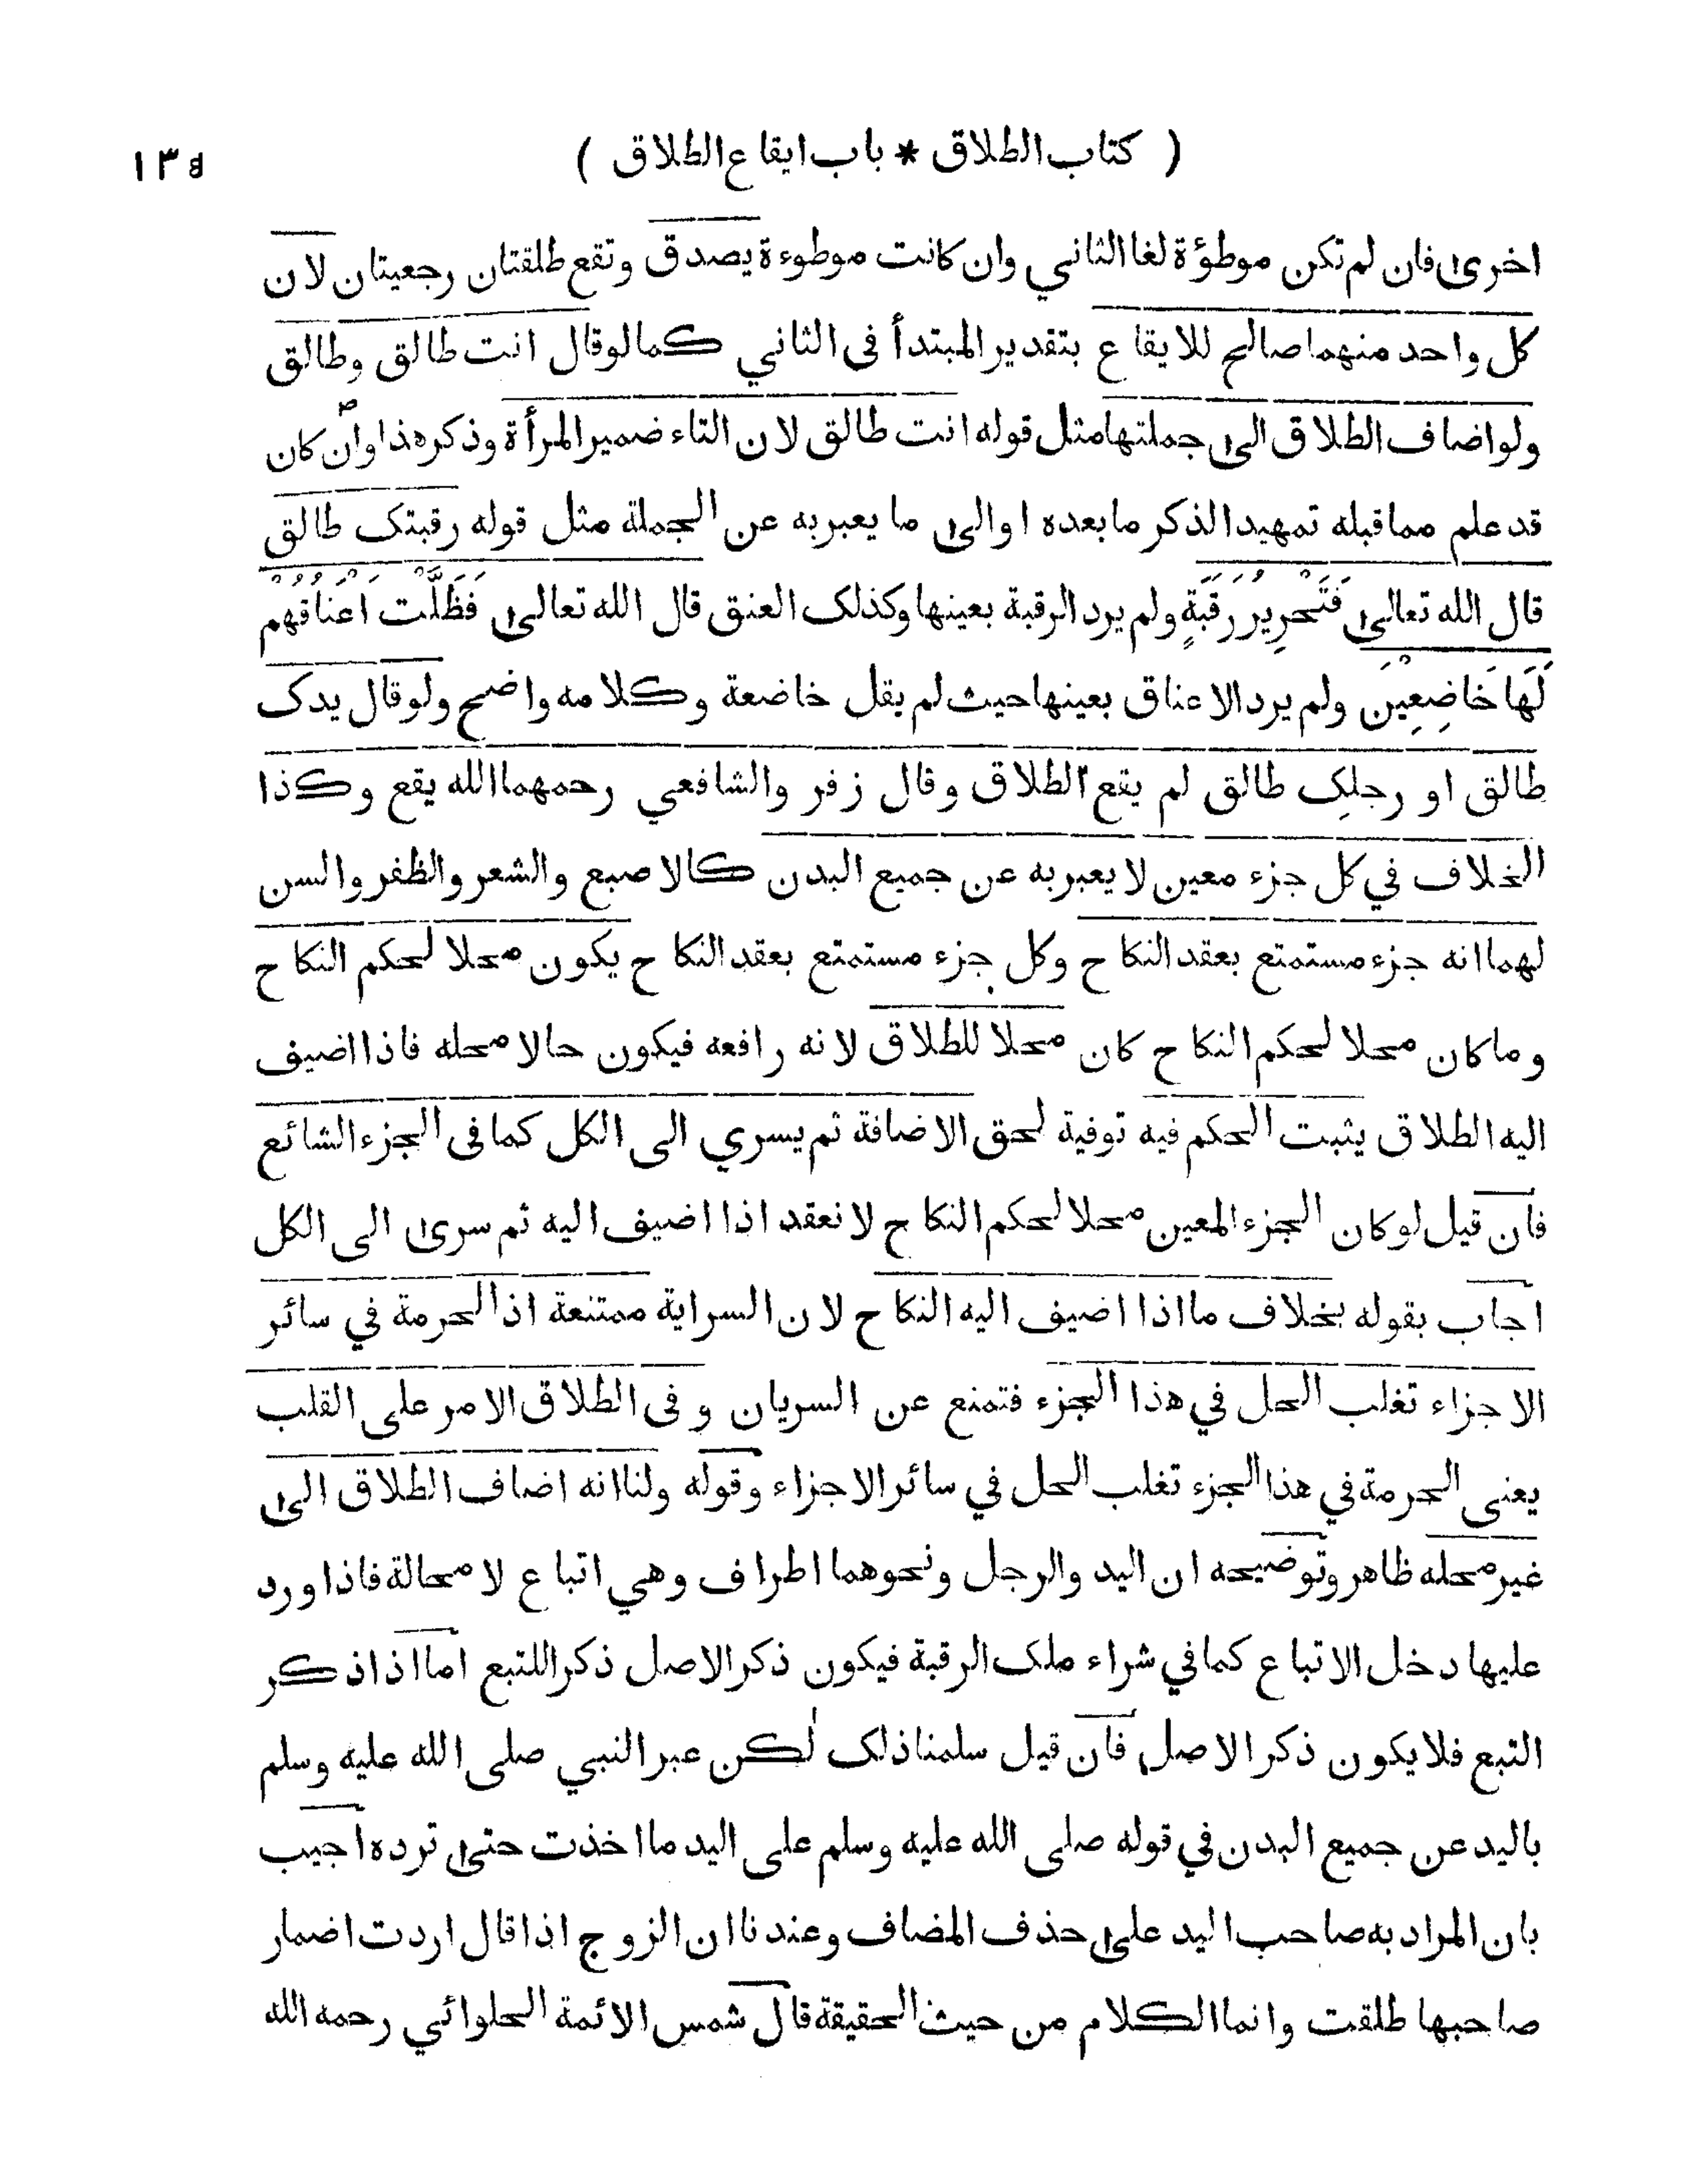 ( كتاب الطلاق * باب ايقاع الطلاق )
اخرى فان لم تكن موطؤة لغا الثاني وان كانت موطوءة يصدق وتقع طلقتان رجعيتان لان
كل واحد منهما صالح للايقاع بتقدير المبتدأ فى الثاني كما لو قال انت طالق وطالق
ولو اضاف الطلاق الى جملتها مثل قوله انت طالق لان التاء ضمير المرأة وذكر هذا وان كان
قد علم مما قبله تمهيدا لذكر ما بعده او الى ما يعبر به عن الجملة مثل قوله رقبتك طالق
قال الله تعالى فَتَحْرِيرُ رَقَبَةٍ ولم يرد الرقبة بعينها وكذلك العنق قال الله تعالى فَظَلَّتْ اَعْنَاقُهُمْ
لَهَا خَاضِعِيْنَ ولم يرد الاعناق بعينها حيث لم يقل خاضعة وكلامه واضح ولو قال يدك
طالق او رجلِك طالق لم يقع الطلاق وقال زفر والشافعي رحمهما الله يقع وكذا
الخلاف في كل جزء معين لا يعبر به عن جميع البدن كالاصبع والشعر والظفر والسن
لهما انه جزء مستمتع بعقد النكاح وكل جزء مستمتع بعقد النكاح يكون محلا لحكم النكاح
وما كان محلا لحكم النكاح كان محلا للطلاق لانه رافعه فيكون حالا محله فاذا اضيف
اليه الطلاق يثبت الحكم فيه توفية لحق الاضافة ثم يسري الى الكل كما فى الجزء الشائع
فان قيل لو كان الجزء المعين محلا لحكم النكاح لانعقد اذا اضيف اليه ثم سرى الى الكل
اجاب بقوله بخلاف ما اذا اضيف اليه النكاح لان السراية ممتنعة اذ الحرمة في سائر
الاجزاء تغلب الحل في هذا الجزء فتمنع عن السريان وفى الطلاق الامر على القلب
يعنى الحرمة في هذا الجزء تغلب الحل في سائر الاجزاء وقوله ولنا انه اضاف الطلاق الى
غير محله ظاهر وتوضيحه ان اليد والرجل ونحوهما اطراف وهي اتباع لا محالة فاذا ورد
عليها دخل الاتباع كما في شراء ملك الرقبة فيكون ذكر الاصل ذكرا للتبع اما اذا ذكر
التبع فلا يكون ذكر الاصل فان قيل سلمنا ذلك لكن عبر النبي صلى الله عليه وسلم
باليد عن جميع البدن في قوله صلى الله عليه وسلم على اليد ما اخذت حتى ترده اجيب
بان المراد به صاحب اليد على حذف المضاف وعندنا ان الزوج اذا قال اردت اضمار
صاحبها طلقت وانما الكلام من حيث الحقيقة قال شمس الائمة الحلوائي رحمه الله